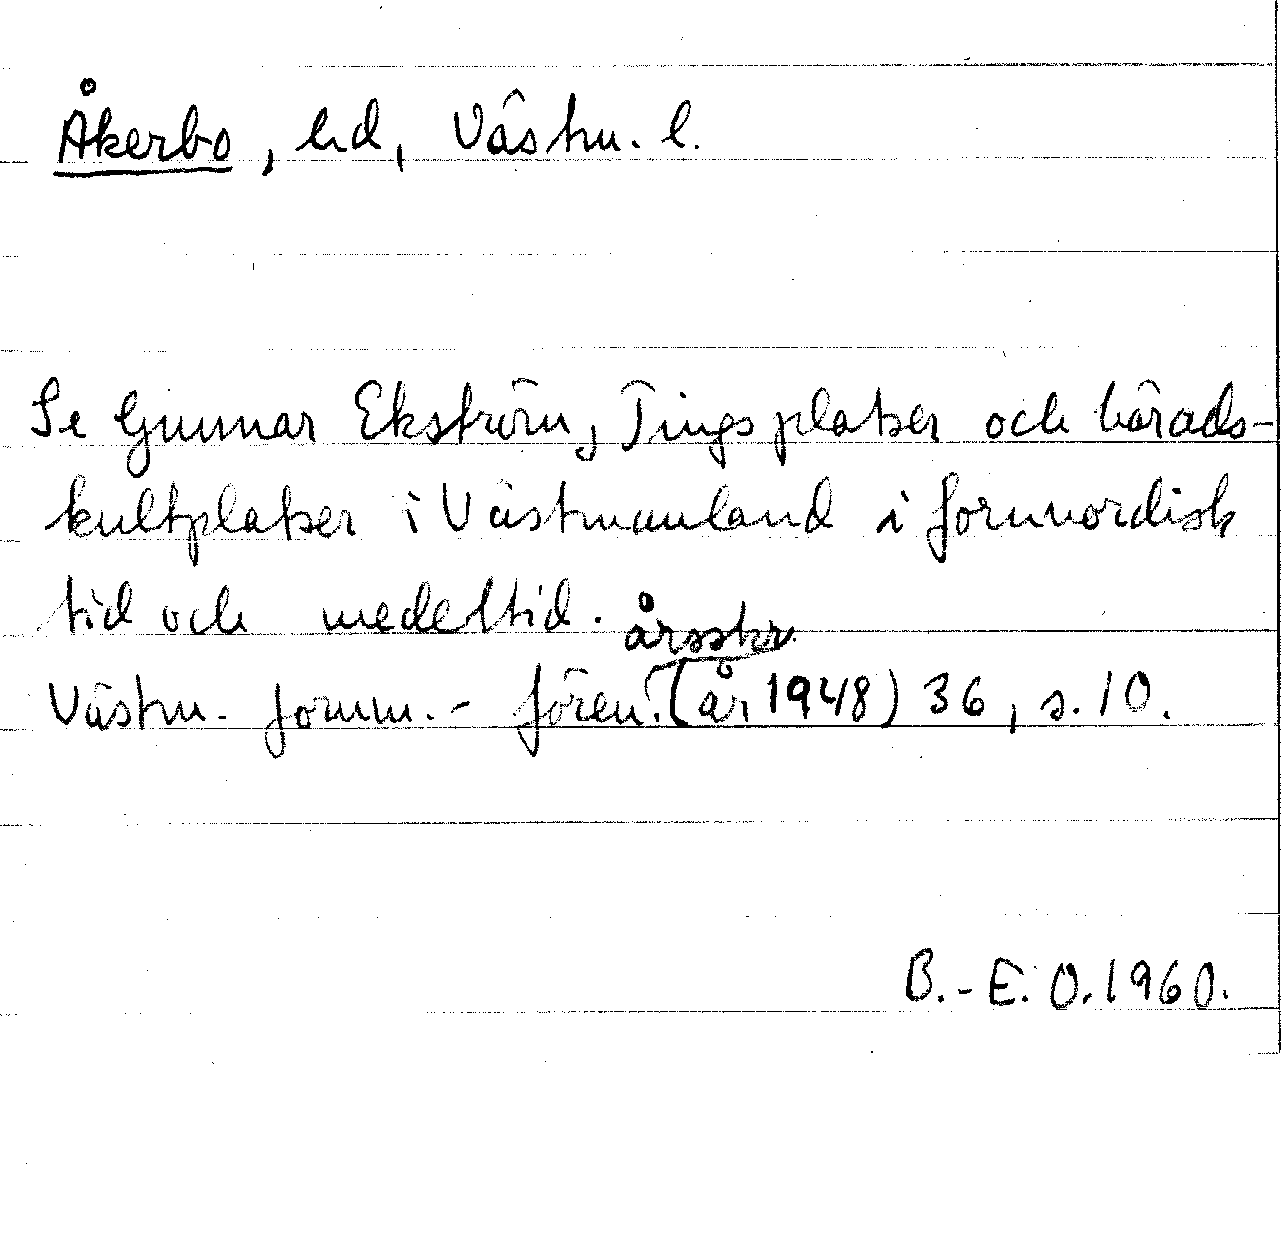 Åkerbo, hd, Västm. l.
Se Gunnar Ekström, Tingsplatser och härads-
kultplatser i Västmanland i fornnordisk
tid och medeltid.
årsskr.
Västm. fornm.- fören. (år 1948) 36, s. 10.
B.-E. O. 1960.